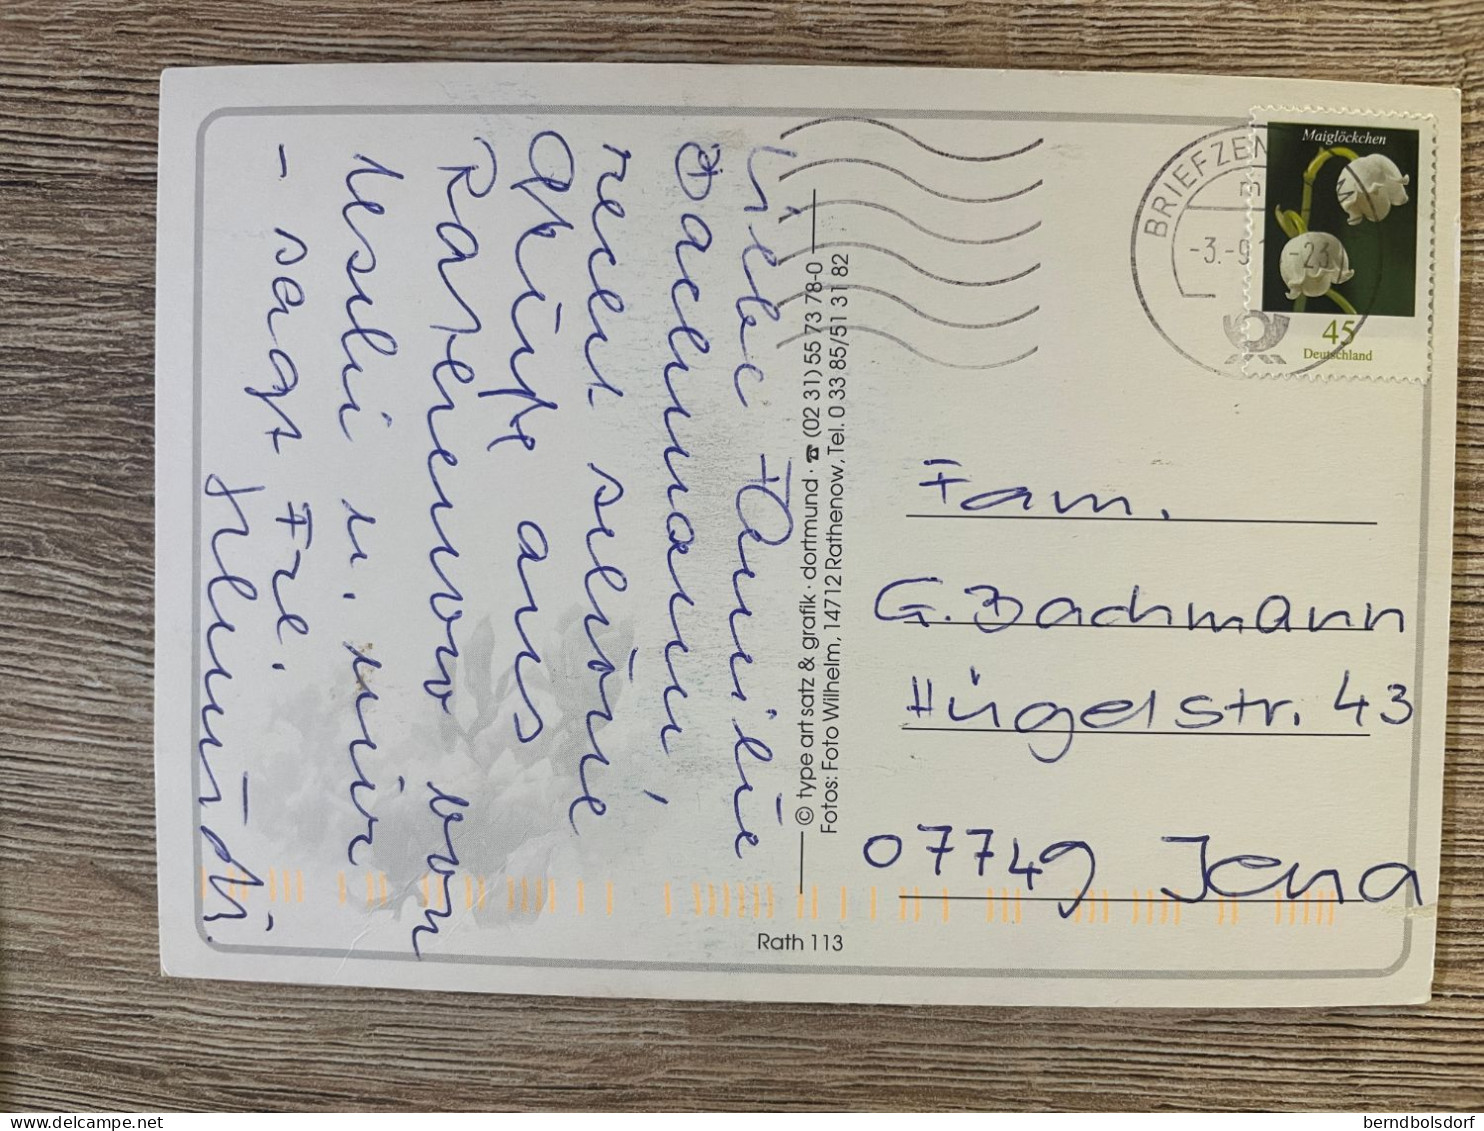 Liebe Familie
Bachmann
recht schöne
Grüße aus
Rathenow von
Uschi u. mir
- sagt Frl.
BRIEFZEN
-3.-9.
-23
Maiglöckchen
45
Deutschland
© type art satz & grafik · dortmund · ☎ (02 31) 55 73 78-0
Fotos: Foto Wilhelm, 14712 Rathenow, Tel. 0 33 85/51 31 82
Fam.
G. Bachmann
Hügelstr. 43
07749 Jena
Rath 113
berndbolsdorf